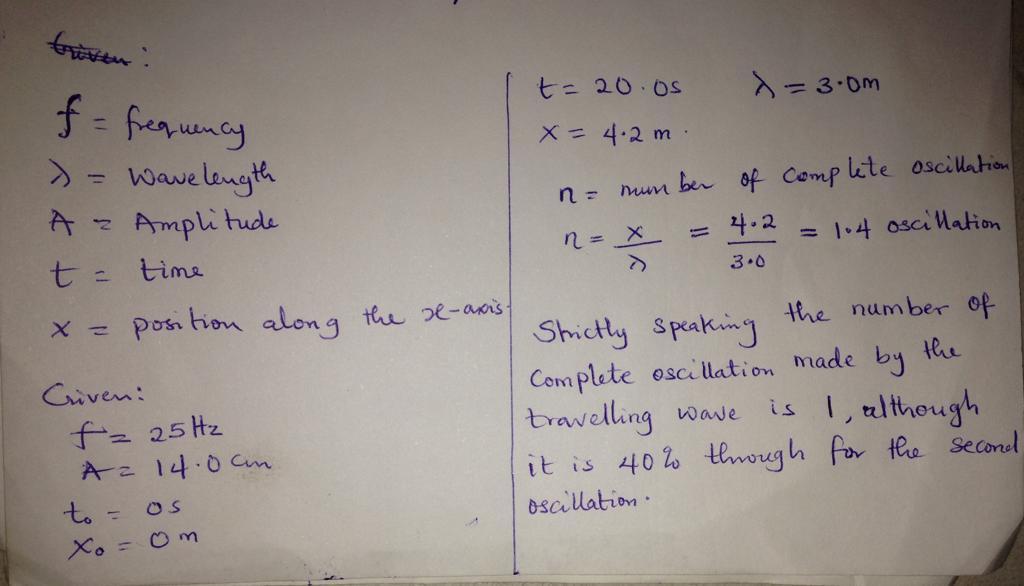 Given :
f = frequency
λ = Wavelength
A = Amplitude
t = time
x = position along the x-axis.
Given:
f = 25 Hz
A = 14.0 cm
t₀ = 0 s
X₀ = 0 m
t = 20.0s λ = 3.0m
X = 4.2 m.
n = number of complete oscillation
n = X/λ = 4.2/3.0 = 1.4 oscillation
Strictly speaking the number of
Complete oscillation made by the
travelling wave is 1, although
it is 40% through for the second
oscillation.